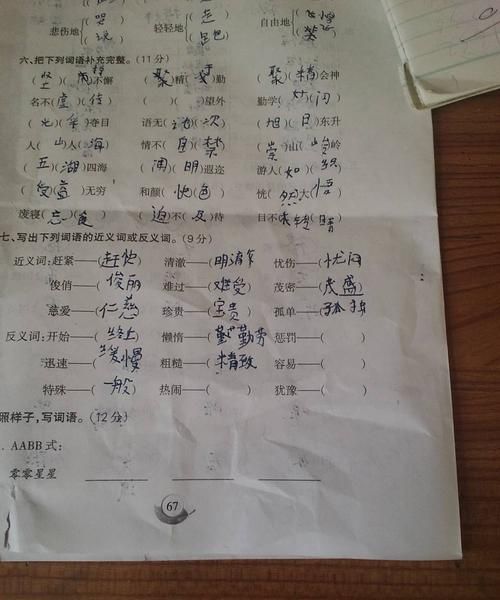 悲伤地 哭 说 轻轻地 走 自由地
六、把下列词语补充完整。(11分)
(坚)(持)不懈 (聚)精( )勤 (聚)(精)会神
名不(虚)(传) ( )( )望外 勤学( )(闪)
(光)(彩)夺目 语无( )(次) (旭)(日)东升
人(山)人(海) 情不(自)(禁) (崇)山( )岭
(五)(湖)四海 ( )(明)遐迩 游人(如)(织)
(受)(益)无穷 和颜(悦)(色) 恍(然)大(悟)
废寝(忘)(食) (迫)不(及)待 目不( )(睛)
七、写出下列词语的近义词或反义词。(9分)
近义词:赶紧——(赶快) 清澈——(明净) 忧伤——(忧闷)
俊俏——(俊丽) 难过——(难受) 茂密——(茂盛)
慈爱——(仁慈) 珍贵——(宝贵) 孤单——(孤独)
反义词:开始——(终止) 懒惰——(勤劳) 惩罚——( )
迅速——(缓慢) 粗糙——(精致) 容易——( )
特殊——(一般) 热闹——( ) 犹豫——( )
照样子,写词语。(12分)
. AABB式:
零零星星
67